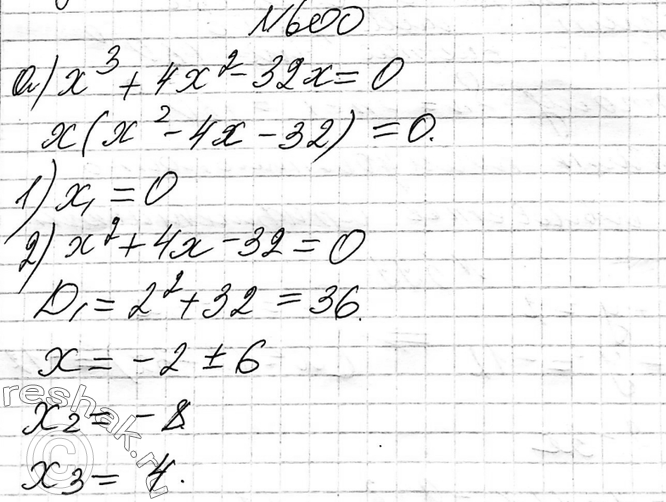 №600
а) x³ + 4x² - 32x = 0
x(x² - 4x - 32) = 0.
1) x₁ = 0
2) x² + 4x - 32 = 0
D₁ = 2² + 32 = 36.
x = -2 ± 6
x₂ = -8
x₃ = 4.
©reshak.ru